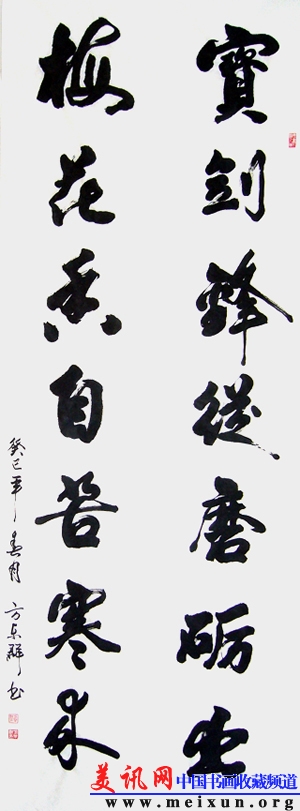 寶劍鋒從磨砺出
梅花香自苦寒來
癸巳年春月方东驊书
美讯网 中国书画收藏频道
www.meixun.org